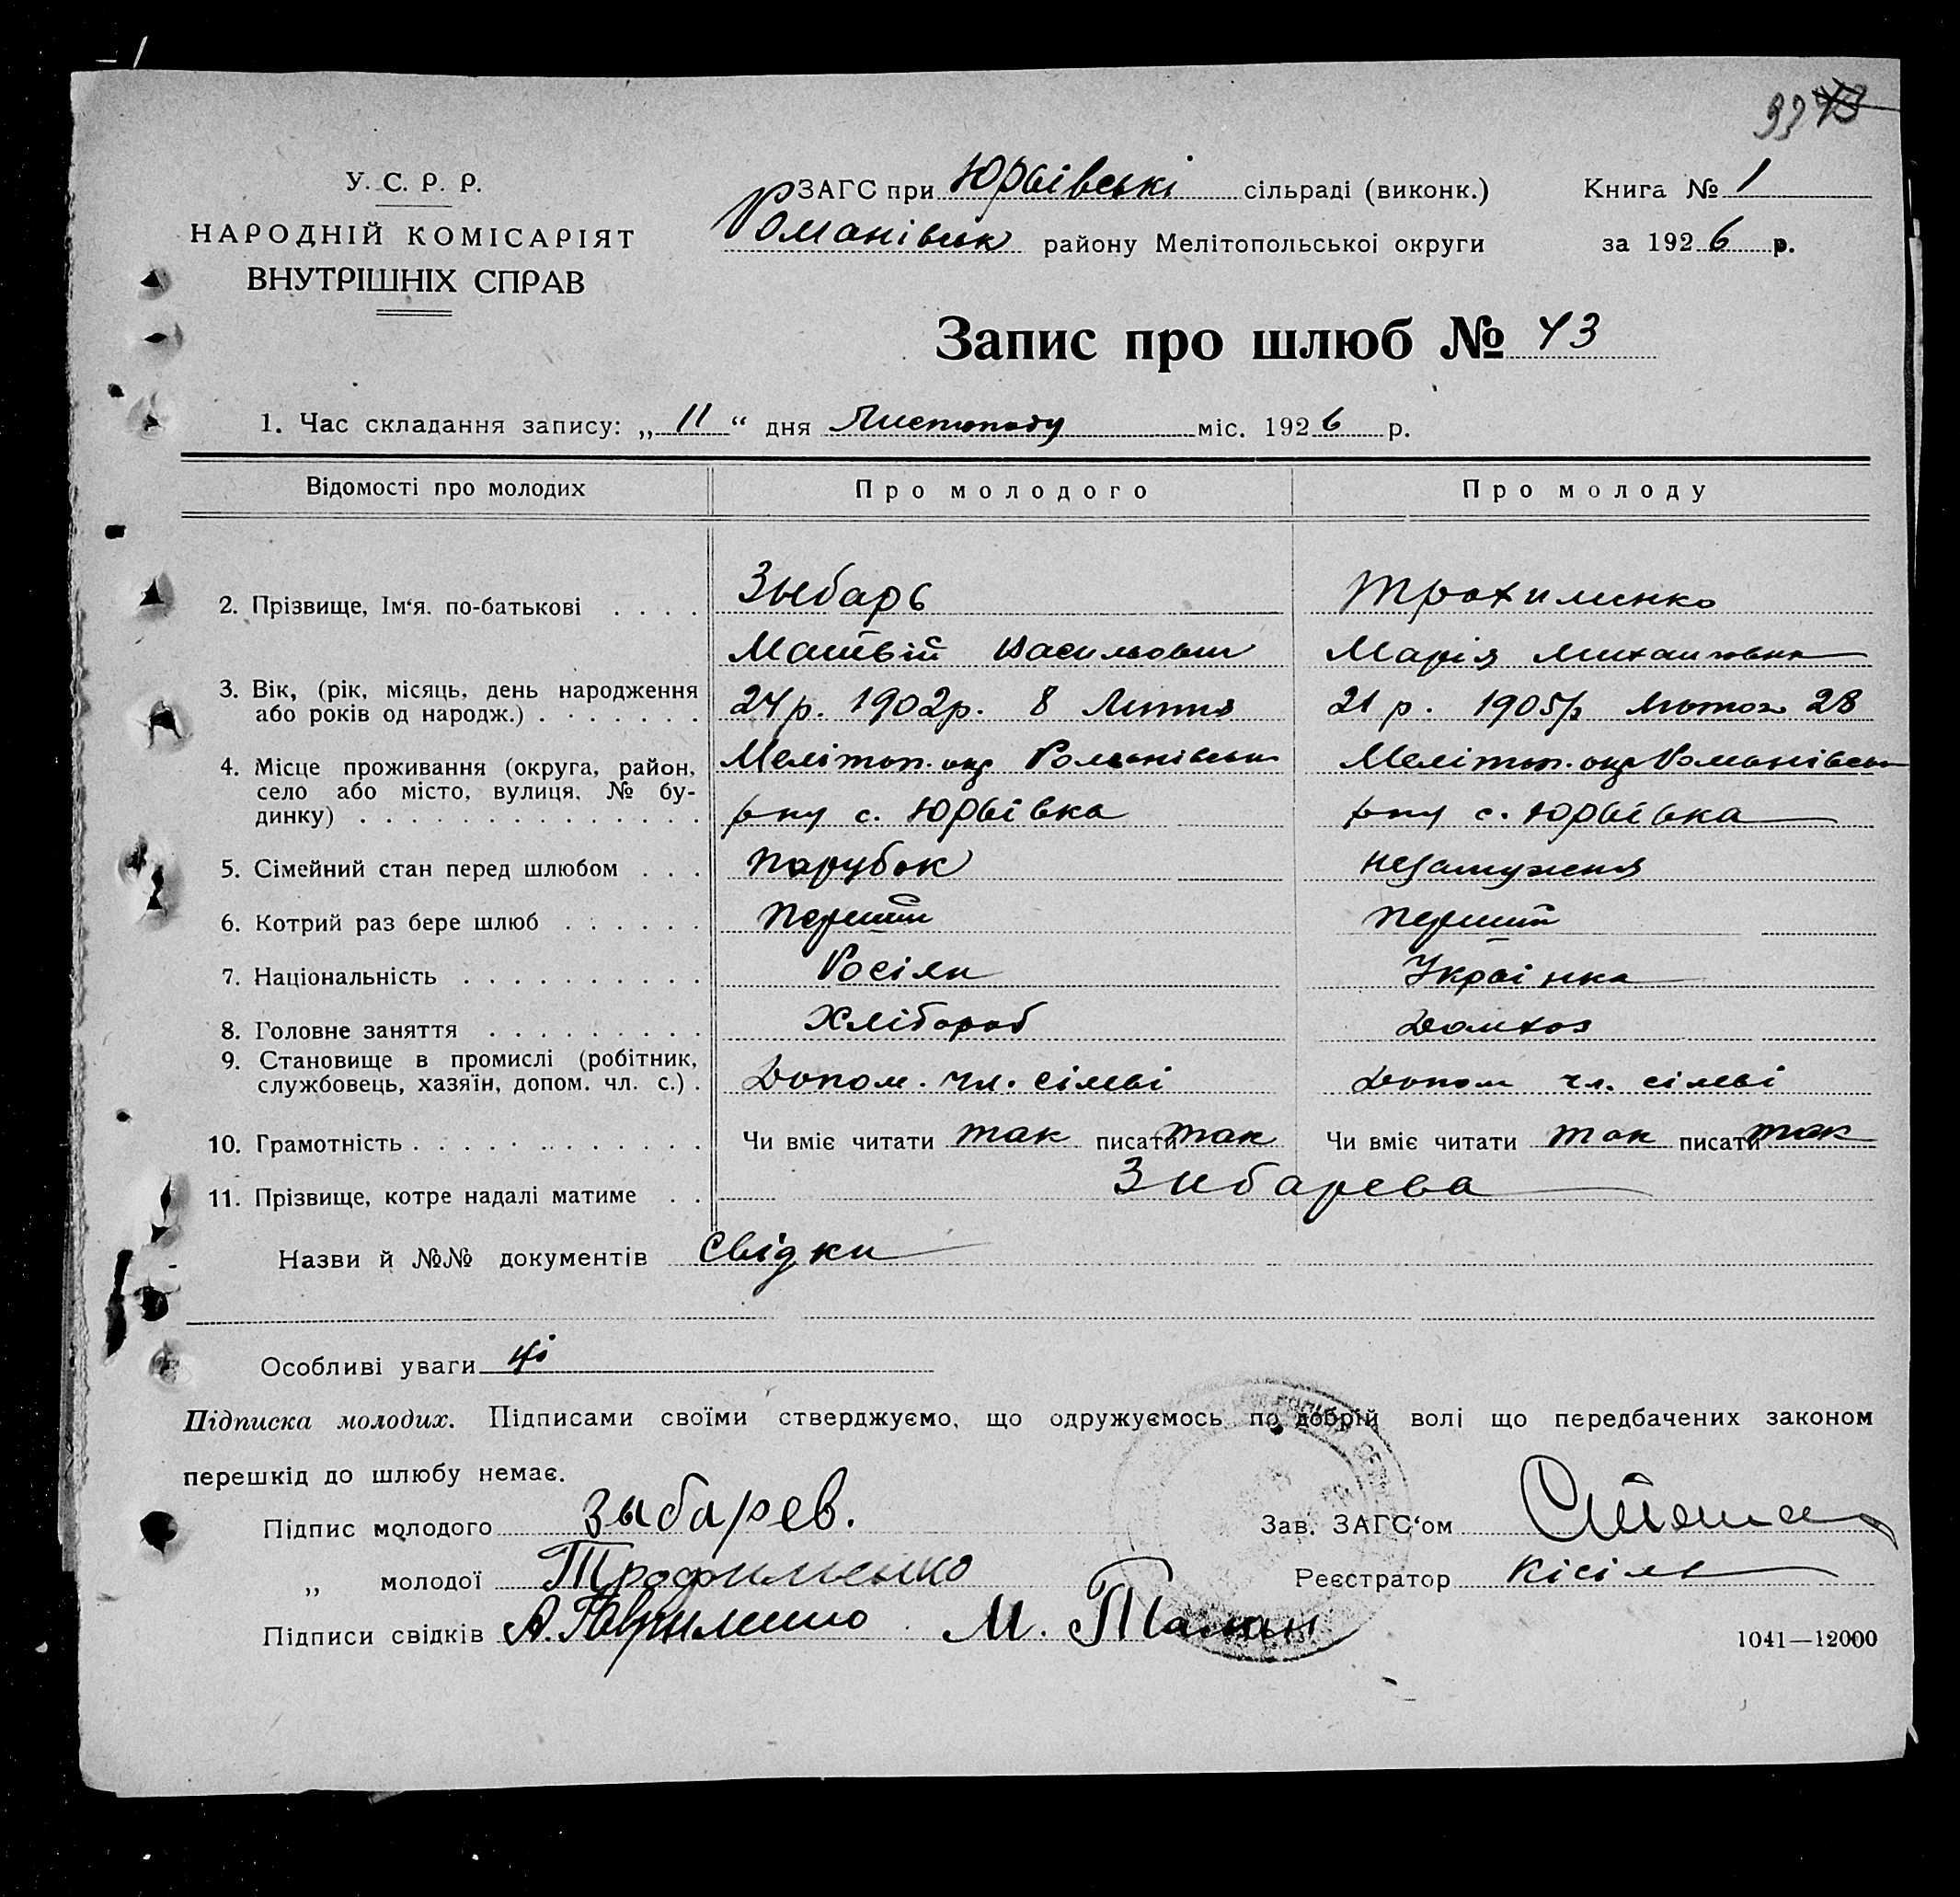 99 43
У. С. Р. Р.
НАРОДНІЙ КОМІСАРІЯТ
ВНУТРІШНІХ СПРАВ
ЗАГС при Юрьівські сільраді (виконк.)
Романівськ району Мелітопольської округи
Книга № 1
за 1926 р.
Запис про шлюб № 43
1. Час складання запису: „ 11 “ дня Листопаду міс. 1926 р.
Відомості про молодих Про молодого Про молоду
2. Прізвище, Ім‘я. по-батькові . . . . Зыбарь Трохименко
Матвій Васильович Марія Михайловна
3. Вік, (рік, місяць, день народження
або років од народж.) . . . . . . . 24 р. 1902р. 8 Липня 21 р. 1905р Лютого 28
4. Місце проживання (округа, район,
село або місто, вулиця, № бу-
динку) . . . . . . . . . . . . . .
Мелітоп. окр Романівськ Мелітоп. окр Романівськ
рну с. Юрьівка рну с. Юрьівка
5. Сімейний стан перед шлюбом . . . парубок незамужня
6. Котрий раз бере шлюб . . . . . . перший перший
7. Національність . . . . . . . . . . Росіян Украінка
8. Головне заняття . . . . . . . . . Хлібороб Домхоз
9. Становище в промислі (робітник,
службовець, хазяїн, допом. чл. с.) . Допом. чл. сімьі Допом чл. сімьі
10. Грамотність . . . . . . . . . . . . Чи вміє читати так писати так Чи вміє читати так писати так
11. Прізвище, котре надалі матиме . . Зыбарева
Назви й №№ документів Свідки
Особливі уваги
Підписка молодих. Підписами своїми стверджуємо, що одружуємось по добрій волі що передбачених законом
перешкід до шлюбу немає.
Підпис молодого Зыбарев. Зав. ЗАГС‘ом
„ молодої Трофименко Реєстратор Кісіль
Підписи свідків А. М. Таман
1041—12000